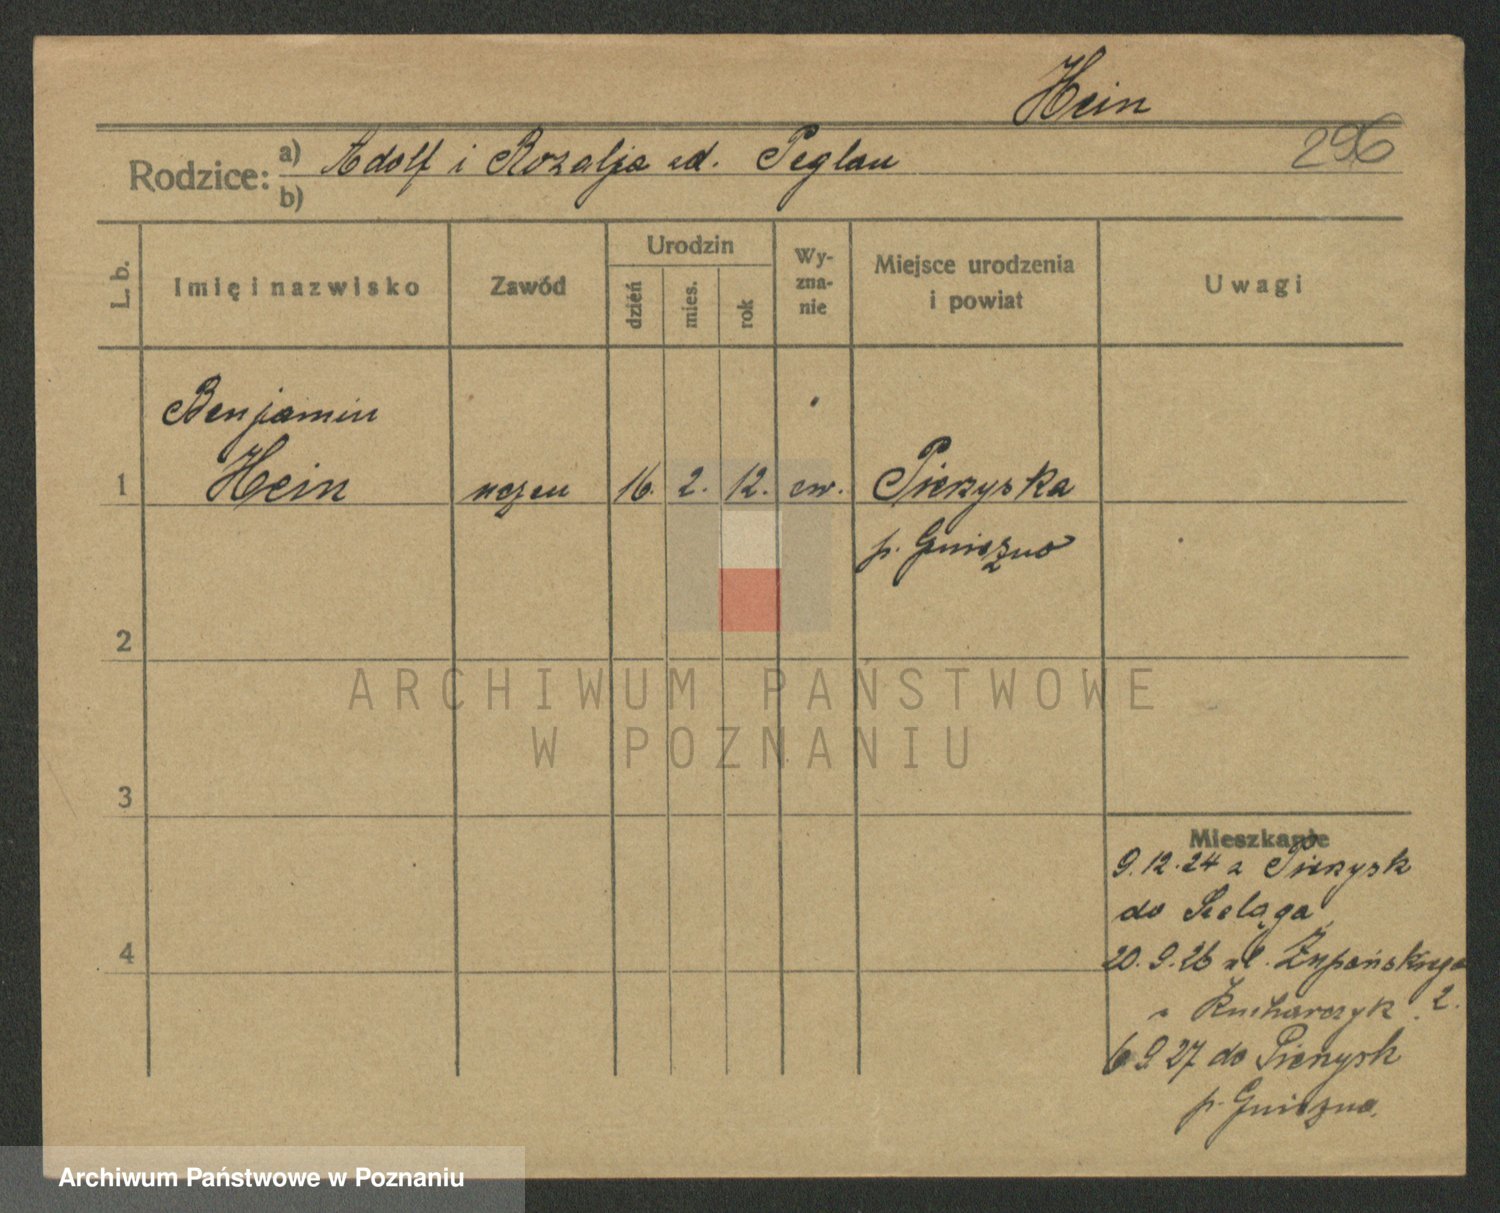 Hein
296
Rodzice: a) Adolf i Rozalja zd. Peglau
b)
L. b. Imię i nazwisko Zawód Urodzin dzień mies. rok Wyznanie Miejsce urodzenia i powiat Uwagi
Benjamin
1 Hein uczeń 16. 2. 12. ew. Pierzyska
p. Gniezno
2
ARCHIWUM PAŃSTWOWE
W POZNANIU
3
Mieszkanie
9.12.24 z Pierzysk
do Szeląga
4
20.9.26 ul. Żupańskiego
u Kucharczyk 2.
6 9 27 do Pierzysk
p. Gniezno.
Archiwum Państwowe w Poznaniu